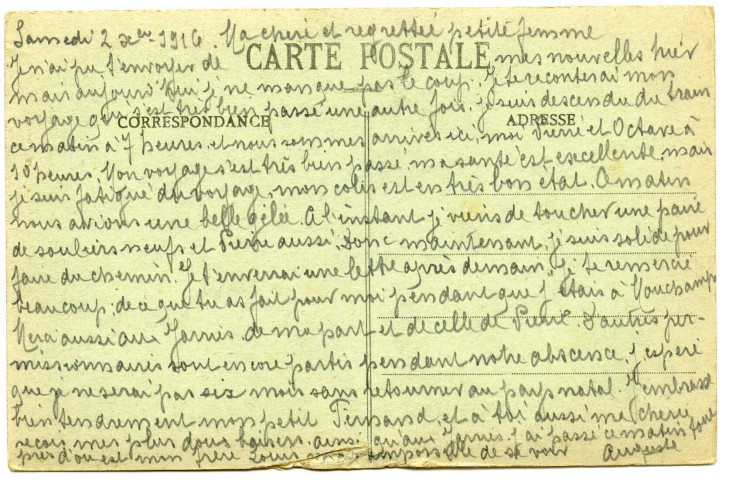 Samedi 2 Xbre 1916. Ma chère et regrettée petite femme
CARTE POSTALE
Je n'ai pu t'envoyer de mes nouvelles hier
mais aujourd'hui je ne manque pas le coup. Je te raconterai mon
voyage qui s'est très bien passé une autre fois. Je suis descendu du train
CORRESPONDANCE
ADRESSE
ce matin à 7 heures et nous sommes arrivés ici, moi Pierre et Octave à
10 heures. Mon voyage s'est très bien passé, ma santé est excellente, mais
je suis fatigué du voyage, mon colis est en très bon état. Ce matin
nous avions une belle gelée. A l'instant je viens de toucher une paire
de souliers neufs et Pierre aussi. Donc maintenant je suis solide pour
faire du chemin. Je t'enverrai une lettre après demain. Je te remercie
beaucoup de ce que tu as fait pour moi pendant que j'étais à Mouchamps
Merci aussi aux Jarriès de ma part et de celle de Pierre. D'autres per-
missionnaires sont encore partis pendant notre abscence. J'espère
que je ne serai pas six mois sans retourner au pays natal. J'embrasse
bien tendrement mon petit Fernand, et à toi aussi ma chérie
reçois mes plus doux baisers ainsi qu'aux Jarriès. J'ai passé ce matin tout
près d'où est mon frère Louis impossible de se voir Auguste